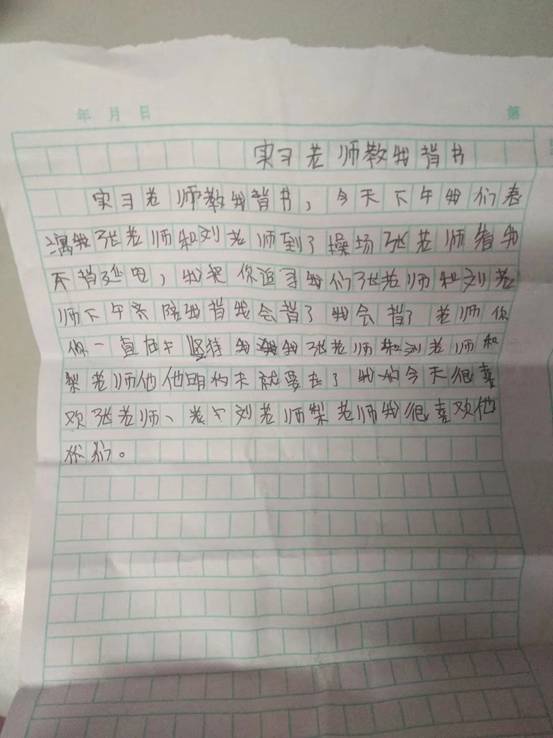 年 月 日 第
实习老师教我背书
实习老师教我背书，今天下午我们春
张老师和刘老师到了操场张老师着我
不背，我你近习我们张老师和刘老
师下午来陪我背我会背了我会背了老师你
你一直在中坚持我我张老师和刘老师和
梨老师他他明白天就要走了我的今天很喜
欢张老师、老下刘老师梨老师我很喜欢他
你们。